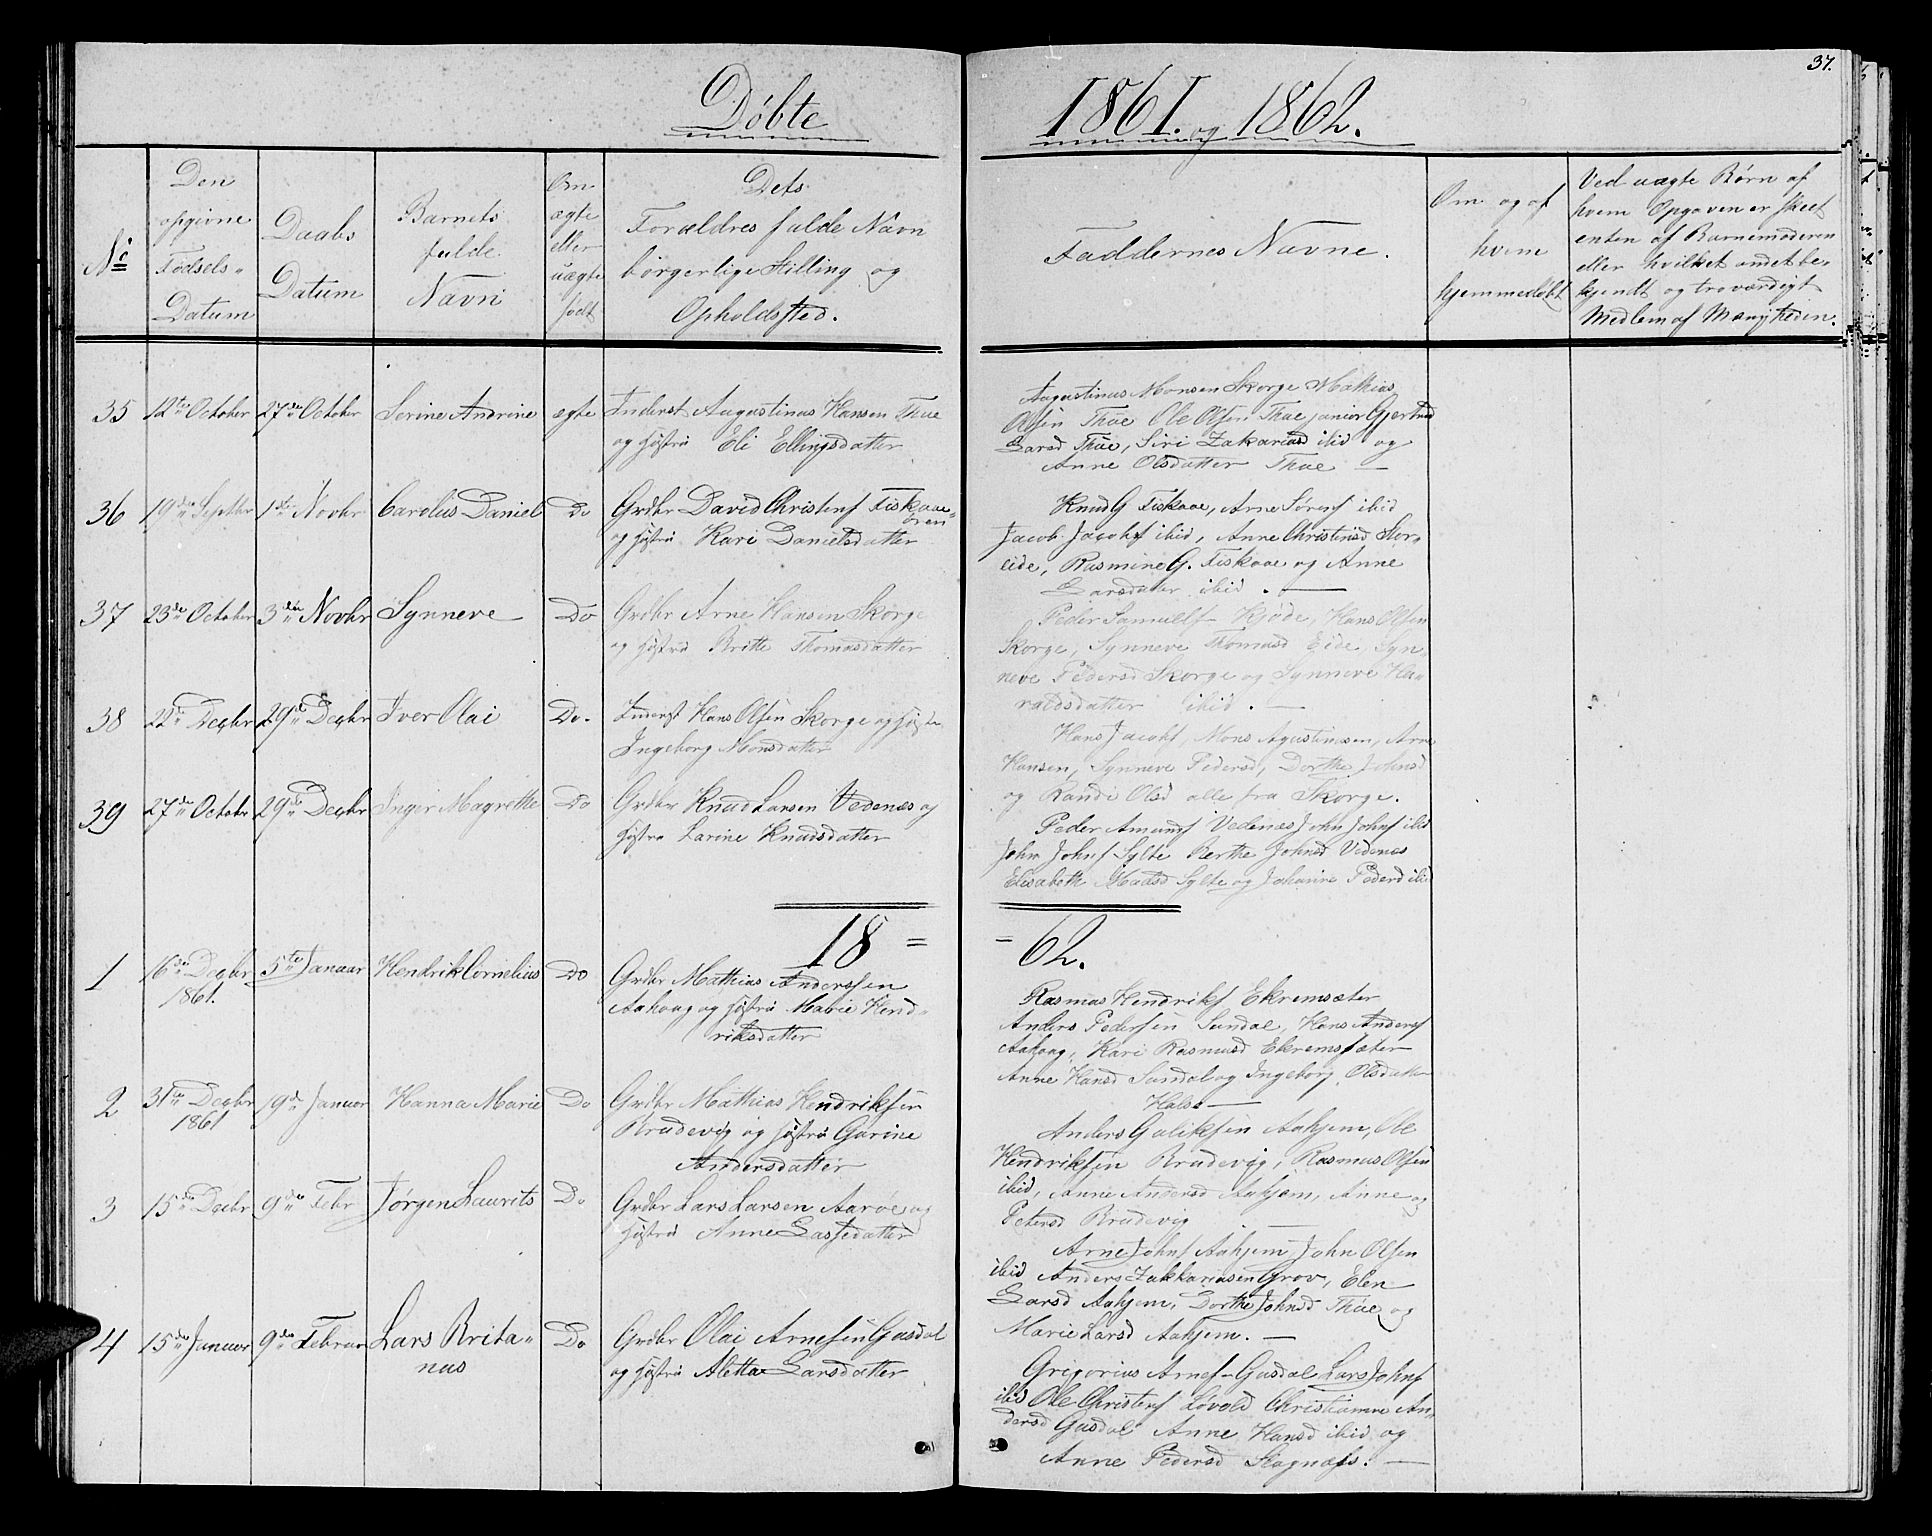 37.
Døbte
1861. og 1862.
No
Den opgivne Fødsels- Datum
Daabs Datum
Barnets fulde Navn
Om ægte eller uægte født
Dets Forældres fulde Navn borgerlige Stilling og Opholdssted.
Faddernes Navne.
Om og af hvem hjemmedøbt
Ved uægte Børn af
hvem Opgaven er skeet
enten af Barnemoderen
eller hvilket andet be-
kjendt og troværdigt
Medlem af Menigheden.
35 12te October 27de October Serine Andrine ægte Inderst Augustinus Hansen Thue
og Hustru Eli Ellingsdatter
Augustinus Monsen Skorge Mathias
Olsen Thue Ole Olsen Thue junior Gjertrud
Larsd Thue, Siri Zakariasd ibid og
Anne Olsdatter Thue —
36 19de Septbr 1ste Novbr Carolus Daniel Do Grdbr David Christens Fiskaae-
ören
og Hustru Kari Danielsdatter
Knud G Fiskaae, Arne Sørens ibid
Jacob Jacobs ibid, Anne Christensd Stor-
eide, Rasmine G. Fiskaae og Anne
Larsdatter ibid. —
37 23de October 3die Novbr Synneve Do Grdbr Arne Hansen Skorge
og Hustru Britte Thomasdatter
Peder Samuels Kjöde, Hans Olsen
Skorge, Synneve Thomasd Eide, Syn-
neve Pedersd Skorge og Synneve Ha-
raldsdatter ibid. —
38 22de Decbr 29de Decbr Iver Olai Do. Inderst Hans Olsen Skorge og Hustru
Ingeborg Monsdatter
Hans Jacobs, Mons Agustinusen, Arne
Hansen, Synneve Pedersd, Dorthe Johnsd
og Randi Olsd alle fra Skorge.
39 27de October 29de Decbr Inger Magrethe Do Grdbr Knud Larsen Vedenes og
Hustru Larine Knudsdatter
Peder Amunds Vedenes John Johns ibid
John Johns Sylte Berthe Johnsd Vedenes
Elisabeth Madsd Sylte og Johanne Pedersd ibid
18 = = 62.
1 16de Decbr 5te Januar Hendrik Cornelius Do Grdbr Mathias Anderssen
1861. Aahoug og Hustru Marie Hend-
riksdatter
Rasmus Hendriks Ekremsæter
Anders Pedersen Sundal, Hans Anders
Aahoug, Kari Rasmusd Ekremsæter
Anne Hansd Sundal og Ingeborg Olsdatter
2 31te Decbr 19de Januar Hanna Marie Do Grdbr Mathias Hendriksen
1861 Brudevig og Hustru Gurine
Andersdatter
Anders Guliksen Aahjem, Ole
Hendriksen Brudevig, Rasmus Olsen
ibid, Anne Andersd Aahjem, Anne
Petersd Brudevig —
3 15de Decbr 9de Febr Jørgen Laurits Do Grdbr Lars Larsen Aarve og
Hustru Anne Lassedatter
Arne Johns Aahjem John Olsen
ibid Anders Zakkariasen Grov, Elen
Larsd Aahjem, Dorthe Johnsd Thue og
Marie Larsd Aahjem. —
4 15de Januar 9de Februar Lars Brita- Do Grdbr Olai Arnesen Gusdal
nus og Hustru Aletta Larsdatter
Grigorius Arnes Gusdal Lars Johns
ibid Ole Christens Løvold Christianne An-
dersd Gusdal Anne Hansd ibid og
Anne Pedersd Stagnæs. —